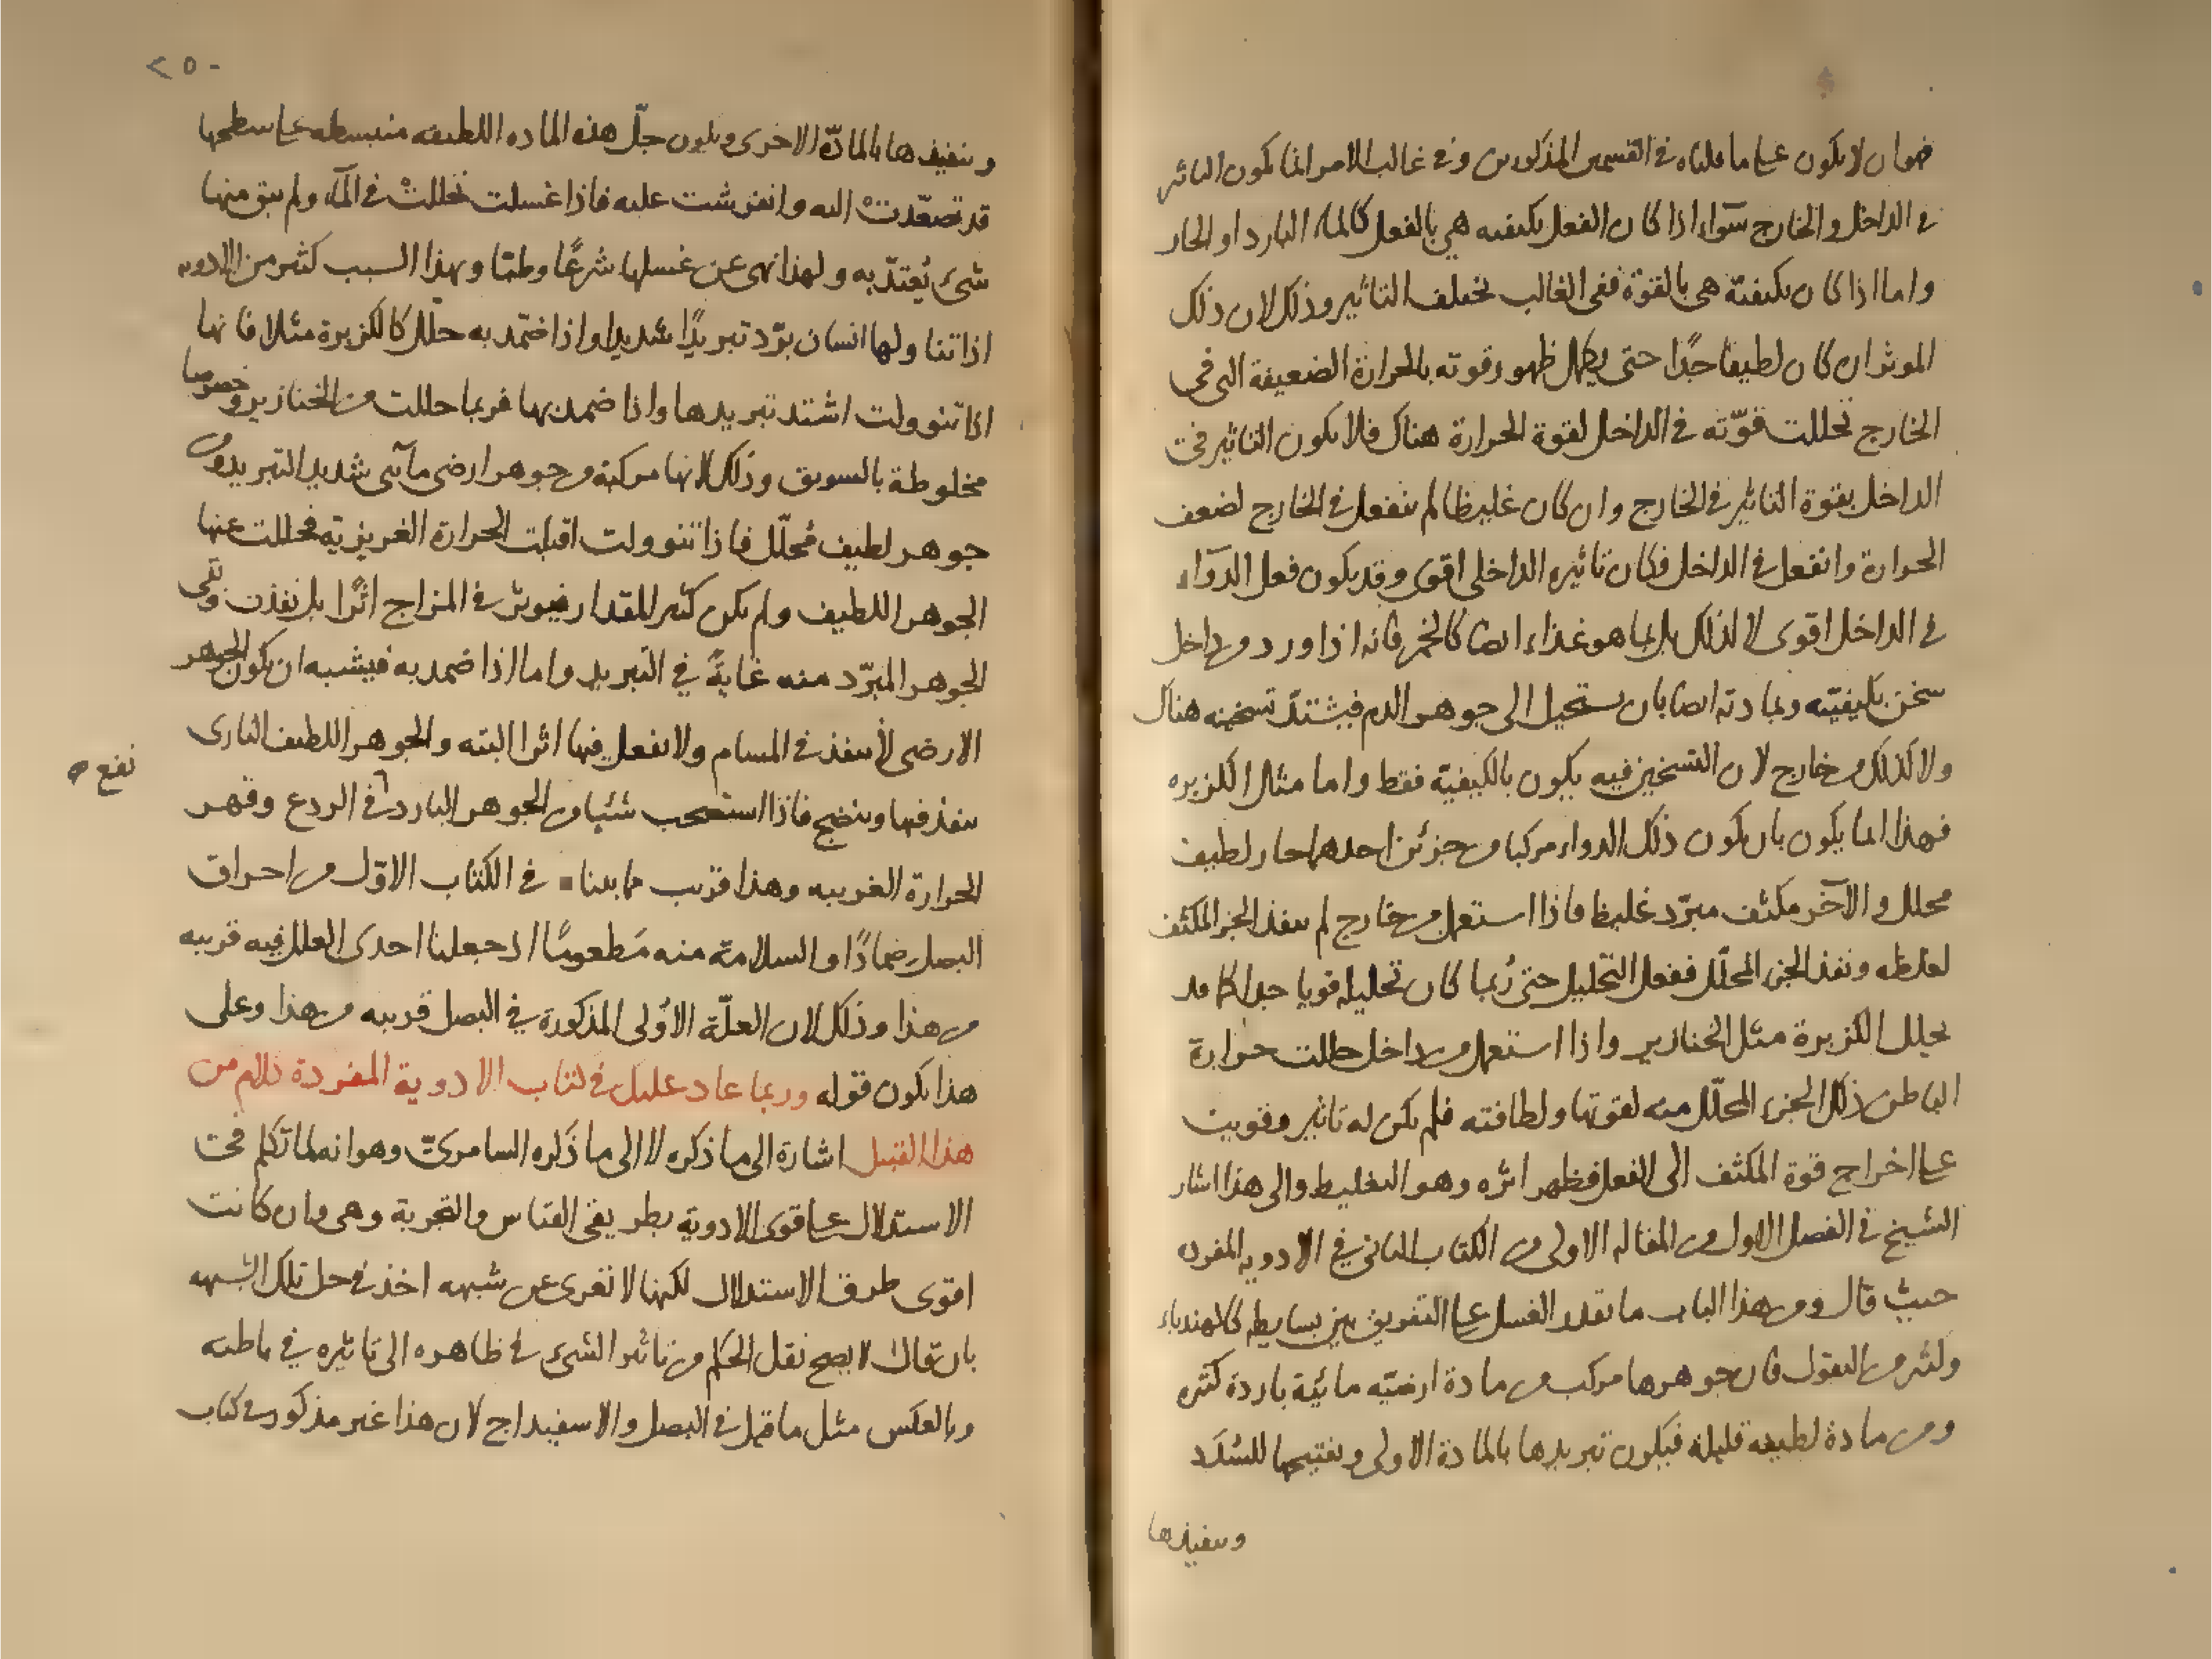 فهو ان لا يكون على ما قلناه في القسمين المذكورين وفي غالب الامر انما يكون التاثير
في الداخل والخارج سواء اذا كان الفعل بكيفيه هي بالفعل كالماء البارد او الحار
واما اذا كان بكيفية هي بالقوة ففي الغالب يختلف التاثير وذلك لان ذلك
الموثر ان كان لطيفا جدا حتى يكمل ظهور قوته بالحرارة الضعيفة التي في
الخارج تحللت قوّته في الداخل لقوة الحرارة هناك فلا يكون التاثير في
الداخل بقوة التاثير في الخارج وان كان غليظا لم ينفعل في الخارج لضعف
الحرارة وانفعل في الداخل فكان تاثيره الداخلي اقوى وقد يكون فعل الدوآء
في الداخل اقوى لا لذلك بل بما هو غذاء ايضا كالخمر فانه اذا ورد من داخل
سخن بكيفيّته وبمادته ايضا بان يستحيل الى جوهر الدم فيشتدّ تسخينه هناك
ولا كذلك من خارج لان التسخين فيه يكون بالكيفيّة فقط واما مثال الكزبره
فهذا انما يكون بان يكون ذلك الدواء مركبا من جزئين احدهما حار لطيف
محلل والآخر مكثف مبرّد غليظ فاذا استعمل من خارج لم ينفذ الجز المكثف
لغلظه ونفذ الجزء المحلّل ففعل التحليل حتى رُبما كان تحليله قويا جدا كما قد
يحلل الكزبرة مثل الخنازير واذا استعمل من داخل حللت حرارة
الباطن ذلك الجزء المحلّل منه لقوتها ولطافته فلم يكن له تاثير وقويت
على اخراج قوة المكثف الى الفعل فظهر اثره وهو التغليظ والى هذا اشار
الشيخ في الفصل الاول من المقاله الاولى من الكتاب الثاني في الادويه المفرده
حيث قال ومن هذا الباب ما يقدر الغسل على التفريق بين بسايطه كالهندباء
وكثير من البقول فان جوهرها مركب من مادة ارضيّه مائيّة باردة كثيره
ومن مادة لطيفه قليله فيكون تبريدها بالمادة الاولى وتفتيحها للسُدَد
وتنفيذها
٢٥٠
وتنفيذها بالمادّة الاخرى ويكون جلّ هذه الماده اللطيفه منبسطه على سطحها
قد تصعّدت اليه وانفرشت عليه فاذا غسلت تحللت في المآء ولم يبق منها
شئ يُعتدّ به ولهذا نهى عن غسلها شرعًا وطبّا وبهذا السبب كثير من الادويه
اذا تناولها انسان برّد تبريدًا شديدا واذا ضمّد به حلّل كالكزبرة مثلا فانها
اذا تنوولت اشتد تبريدها واذا ضمد بها فربما حللت من الخنازير وخصوصا
مخلوطة بالسويق وذلك لانها مركبة من جوهر ارضي مآئي شديد التبريد ومن
جوهر لطيف مُحلّل فاذا تنوولت اقبلت الحرارة الغريزيّه فحللت عنها
الجوهر اللطيف ولم يكن كثير المقدار فيوثر في المزاج اثرًا بل نفذت وبقى
الجوهر المبرّد منه غايةً في التبريد واما اذا ضمد به فيشبه ان يكون الجوهر
الارضي لا ينفذ في المسام ولا يفعل فيها اثرا البته والجوهر اللطيف الناري
ينفذ فيها وينضج فاذا استصحب شيئا من الجوهر البارد في الردع وقهر
نفع صح
الحرارة الغريبه وهذا قريب مما بينا في الكتاب الاوّل من احراق
البصل ضمادًا والسلامة منه مَطعومًا اذ جعلنا احدى العلل فيه قريبه
من هذا وذلك لان العلّة الاوُلى المذكورة في البصل قريبه من هذا وعلى
هذا يكون قوله وربما عاد عليك في كتاب الادوية المفردة كلام من
هذا القبيل اشارة الى ما ذكره لا الى ما ذَكره السامريّ وهو انه لما تكلم في
الاستدلال على قوى الادوية بطريقي القياس والتجربة وهي وان كانت
اقوى طرق الاستدلال لكنها لا تعرى عن شبهه اخذ في حل تلك الشبهه
بان قال لا يصح نقل الحكم من تاثير الشئ في ظاهره الى تاثيره في باطنه
وبالعكس مثل ما قيل في البصل والاسفيداج لان هذا غير مذكور في كتاب